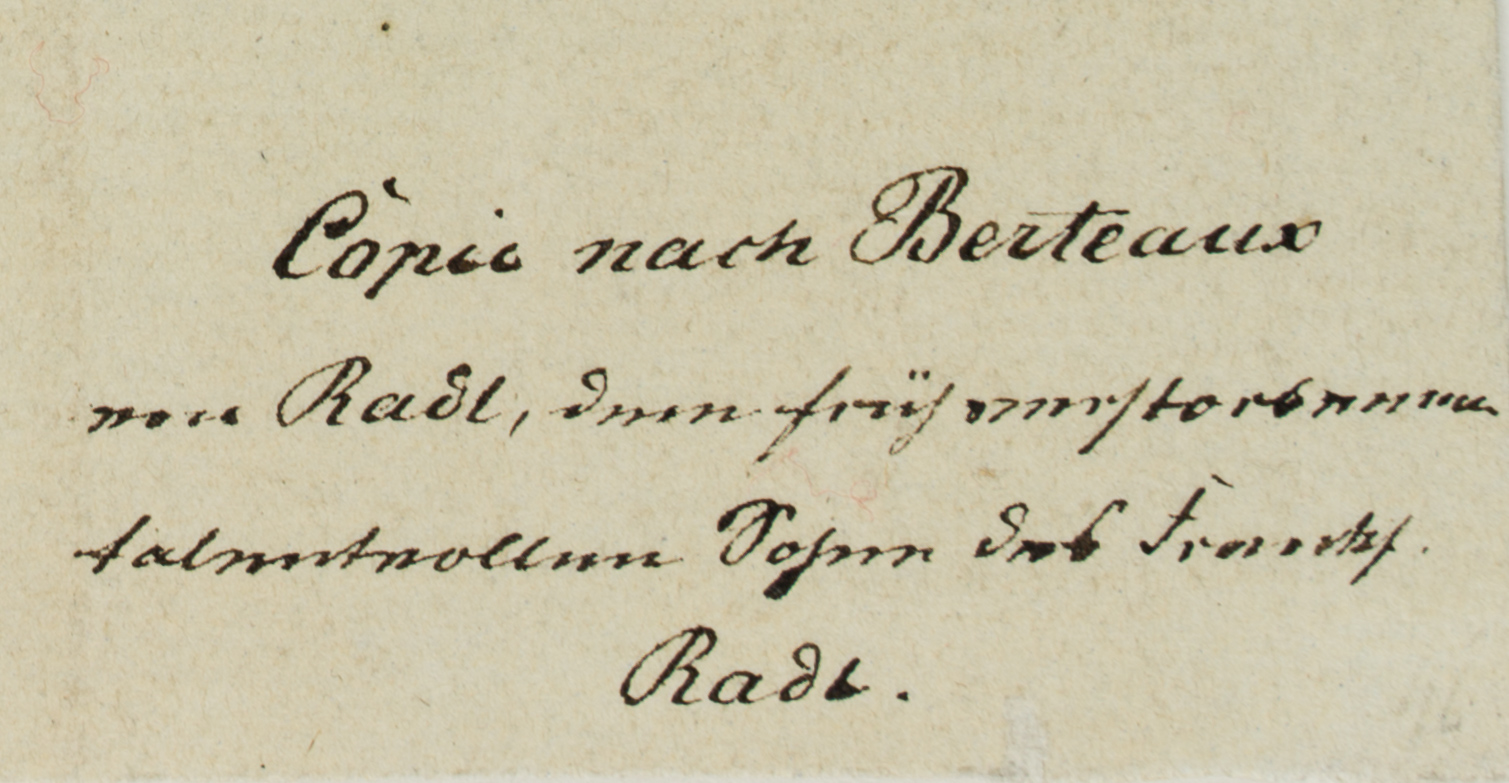 Copie nach Berteaux
von Radl, dem früh verstorbenen
talentvollen Sohne des Frankf.
Radl.